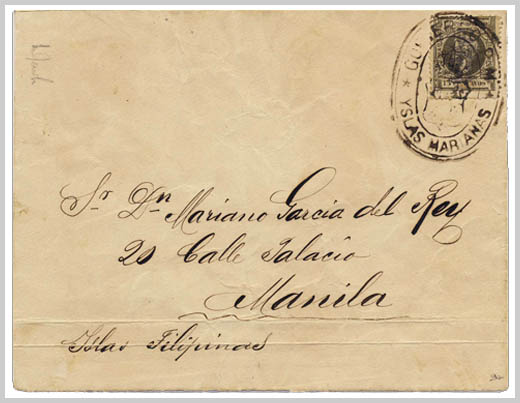 GOBIERNO P. M.
YSLAS MARIANAS
Sr. Dn. Mariano Garcia del Rey
20 Calle Palacio
Manila
Islas Filipinas